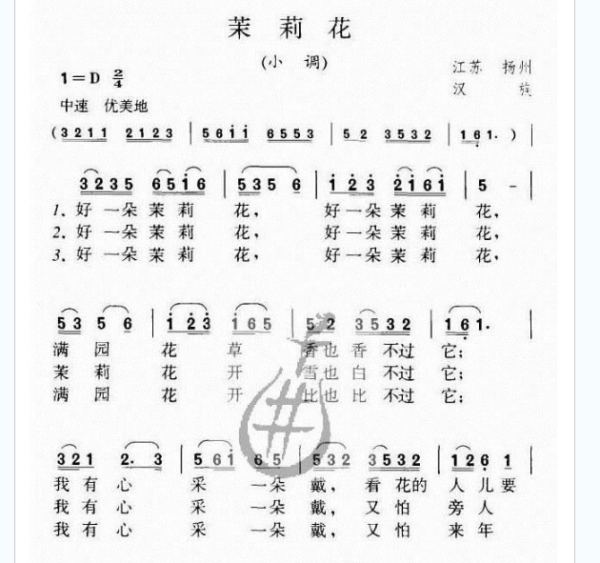 茉 莉 花
(小 调)
1=D 2/4
江苏 扬州
汉 族
中速 优美地
(3211 2123 | 56i̇i̇ 6553 | 52 3532 | 16̣1. ) |
3235 65i̇6 | 535 6 | i̇ 2̇3̇ 2̇i̇6i̇ | 5 - |
1. 好 一朵 茉 莉 花, 好一朵 茉 莉 花,
2. 好 一朵 茉 莉 花, 好一朵 茉 莉 花,
3. 好 一朵 茉 莉 花, 好一朵 茉 莉 花,
53 5 6 | i̇ 2̇3̇ i̇65 | 52 3532 | 16̣1. |
满 园 花 草 香也 香 不过 它;
茉 莉 花 开 雪也 白 不过 它;
满 园 花 开 比也 比 不过 它;
321 2. 3 | 56i̇ 65 | 532 3532 | 126̣ 1 |
我 有 心 采 一朵 戴, 看 花的 人 儿要
我 有 心 采 一朵 戴, 又 怕 旁 人
我 有 心 采 一朵 戴, 又 怕 来 年